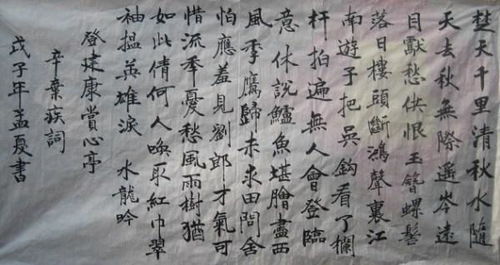 楚天千里清秋水隨
天去秋無際遙岑遠
目獻愁供恨玉簪螺髻
落日樓頭斷鴻聲裏江
南遊子把吳鈎看了欄
杆拍遍無人會登臨
意休說鱸魚堪膾盡西
風季鷹歸未求田問舍
怕應羞見劉郎才氣可
惜流年憂愁風雨樹猶
如此倩何人喚取紅巾翠
袖揾英雄淚 水龍吟
登建康賞心亭
辛棄疾詞
戊子年孟夏書